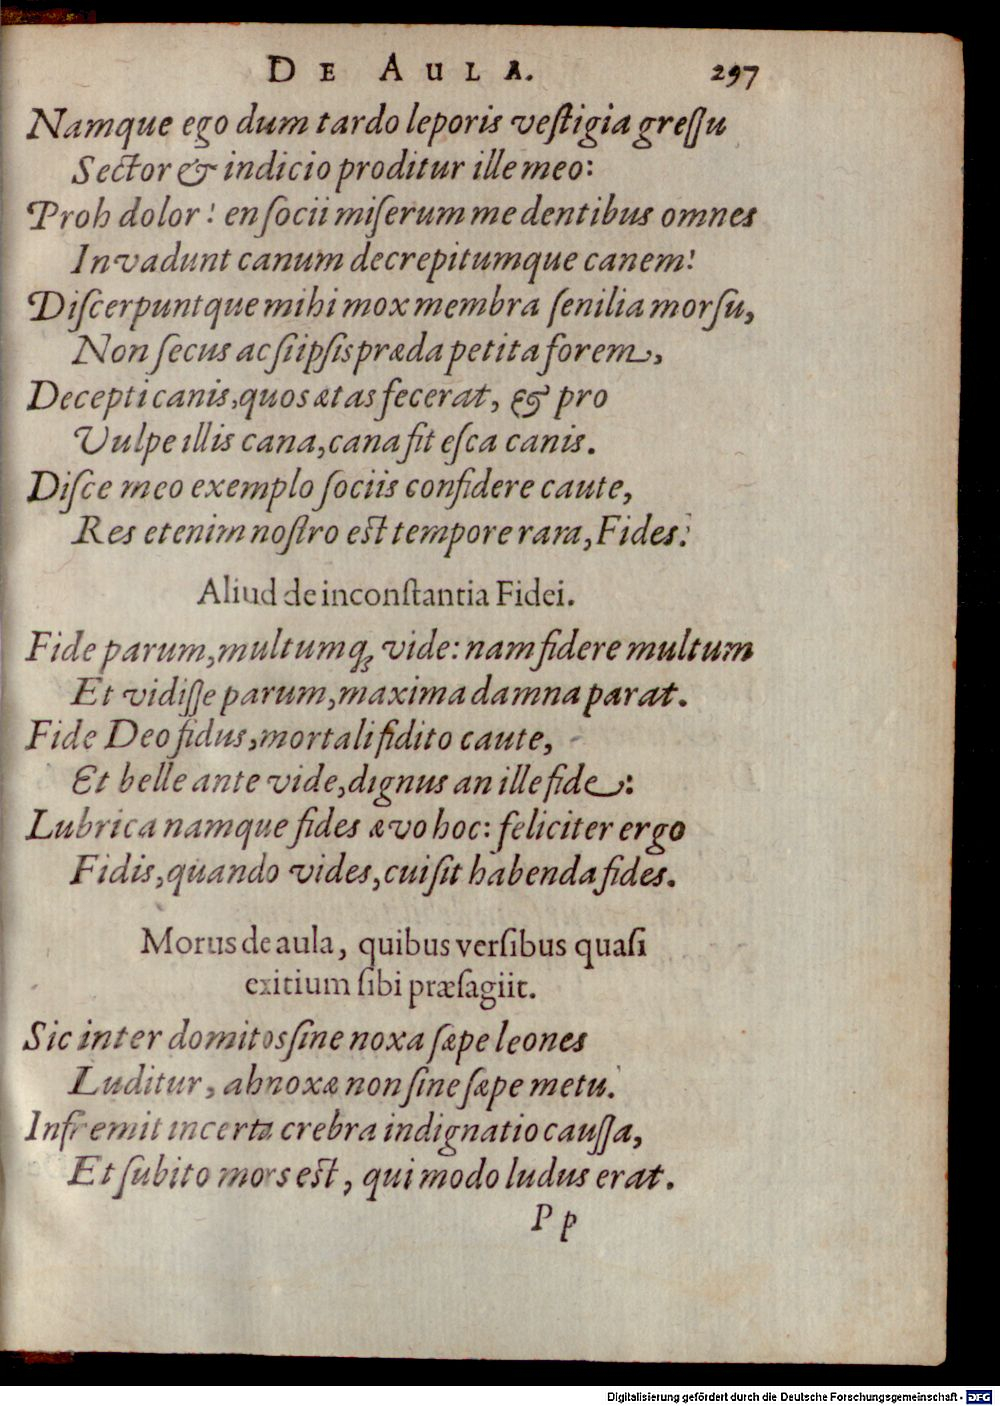 DE AULA. 297
Namque ego dum tardo leporis veſtigia greſſu
Sector & indicio proditur ille meo:
Proh dolor! en ſocii miſerum me dentibus omnes
Invadunt canum decrepitumque canem!
Diſcerpuntque mihi mox membra ſenilia morſu,
Non ſecus ac ſi ipſis præda petita forem,
Decepti canis, quos ætas fecerat, & pro
Vulpe illis cana, cana fit eſca canis.
Diſce meo exemplo ſociis confidere caute,
Res etenim noſtro eſt tempore rara, Fides!
Aliud de inconſtantia Fidei.
Fide parum, multumq; vide: nam fidere multum
Et vidiſſe parum, maxima damna parat.
Fide Deo fidus, mortali fidito caute,
Et belle ante vide, dignus an ille fide:
Lubrica namque fides ævo hoc: feliciter ergo
Fidis, quando vides, cui ſit habenda fides.
Morus de aula, quibus verſibus quaſi
exitium ſibi præſagiit.
Sic inter domitos ſine noxa ſæpe leones
Luditur, ah noxæ non ſine ſæpe metu!
Infremit incerta crebra indignatio cauſſa,
Et ſubito mors eſt, qui modo ludus erat.
Pp
Digitalisierung gefördert durch die Deutsche Forschungsgemeinschaft - DFG